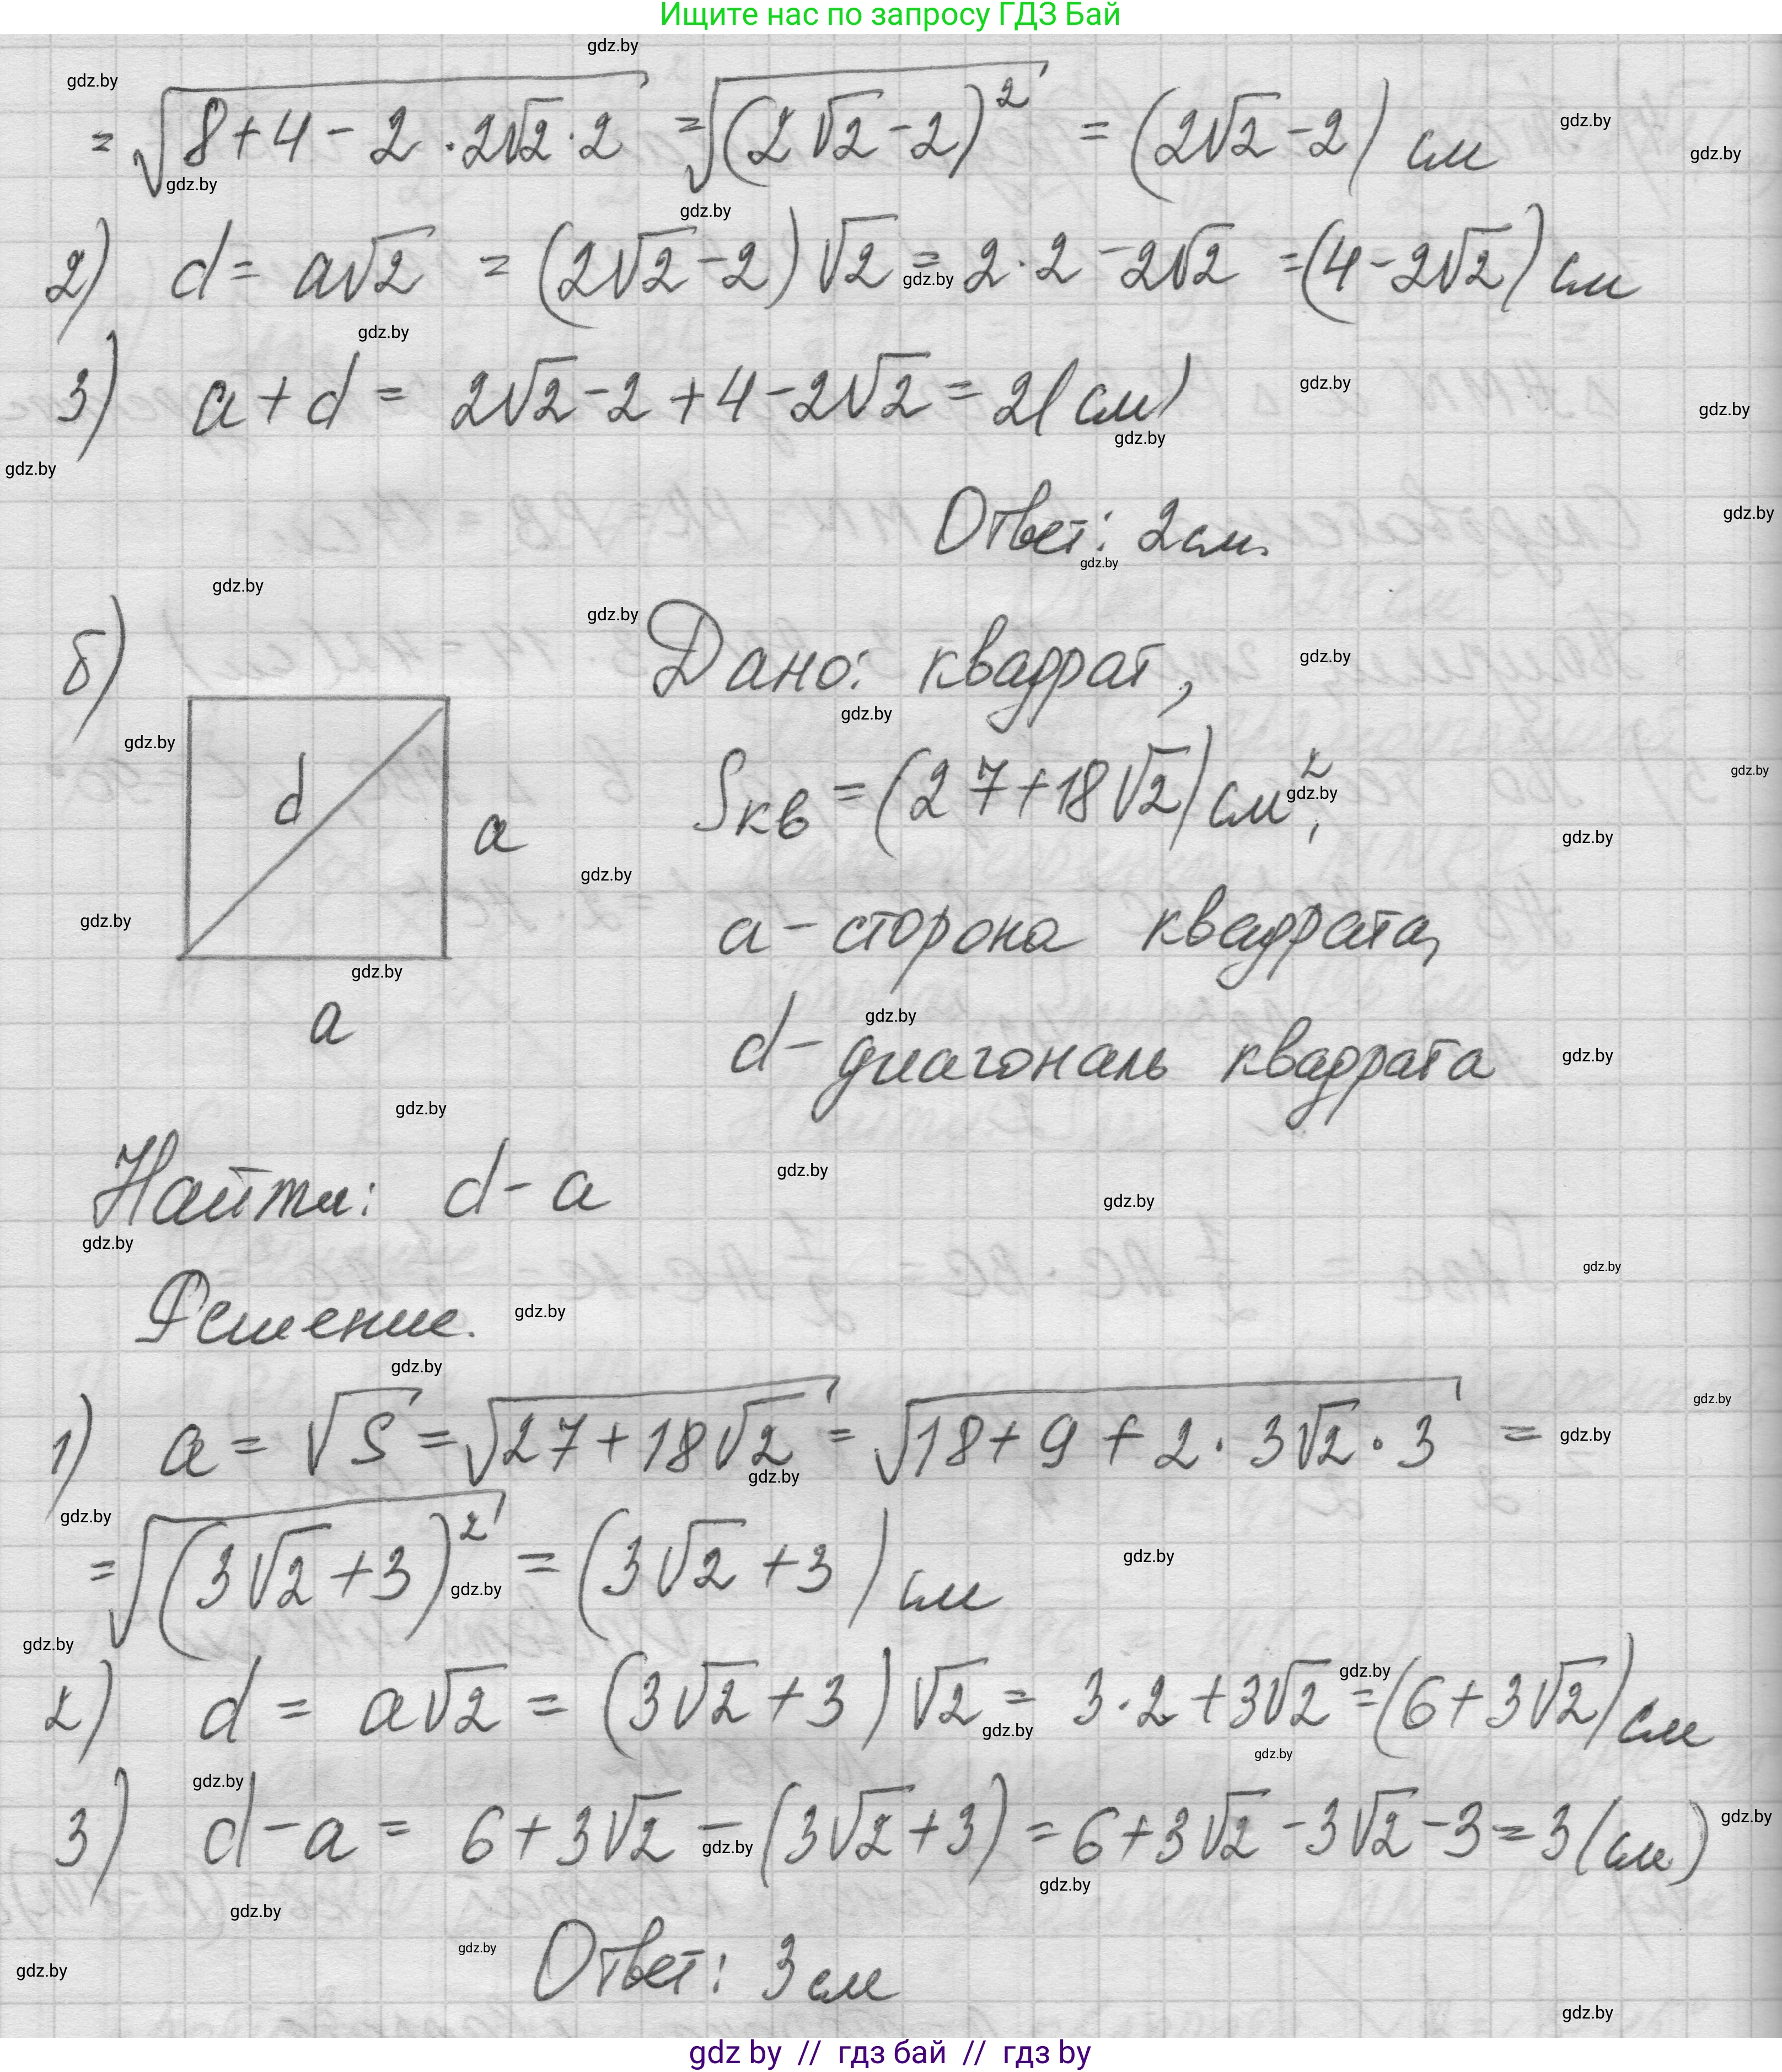 Ищите нас по запросу ГДЗ Бай
= √(8+4-2·2√2·2) = √((2√2-2)²) = (2√2-2) см
2) d = a√2 = (2√2-2)√2 = 2·2-2√2 = (4-2√2) см
3) a+d = 2√2-2+4-2√2 = 2(см)
Ответ: 2см.
б)
Дано: квадрат,
d
a
a
Sкв = (27+18√2) см²,
a - сторона квадрата,
d - диагональ квадрата
Найти: d-a
Решение.
1) a = √S = √(27+18√2) = √(18+9+2·3√2·3) =
= √((3√2+3)²) = (3√2+3) см
2) d = a√2 = (3√2+3)√2 = 3·2+3√2 = (6+3√2) см
3) d-a = 6+3√2-(3√2+3) = 6+3√2-3√2-3 = 3(см)
Ответ: 3см
gdz by // гдз бай // гдз by